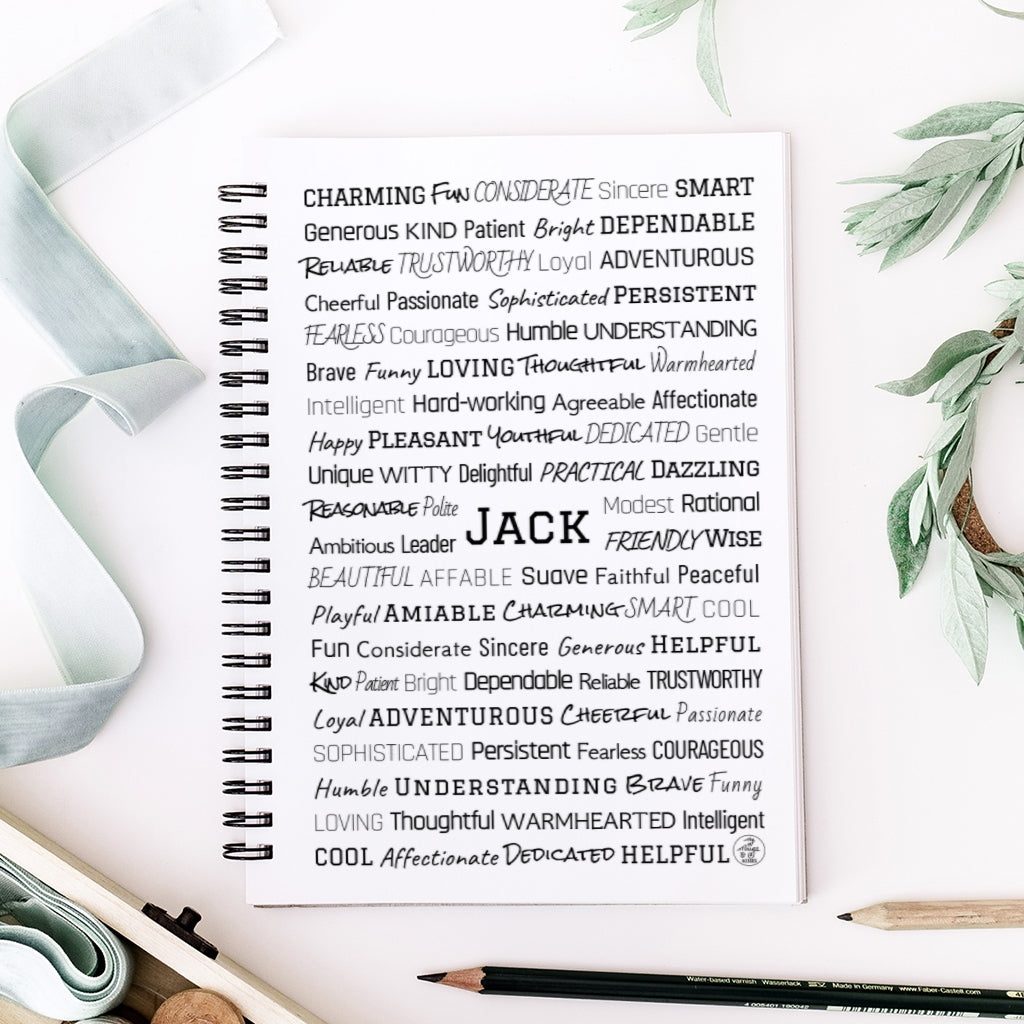 CHARMING FUN CONSIDERATE Sincere SMART
Generous KIND Patient Bright DEPENDABLE
RELIABLE TRUSTWORTHY Loyal ADVENTUROUS
Cheerful Passionate Sophisticated PERSISTENT
FEARLESS Courageous Humble UNDERSTANDING
Brave Funny LOVING THOUGHTFUL Warmhearted
Intelligent Hard-working Agreeable Affectionate
Happy PLEASANT YOUTHFUL DEDICATED Gentle
Unique WITTY Delightful PRACTICAL DAZZLING
REASONABLE Polite Modest Rational
JACK
Ambitious Leader FRIENDLY WISE
BEAUTIFUL AFFABLE Suave Faithful Peaceful
Playful AMIABLE CHARMING SMART COOL
Fun Considerate Sincere Generous HELPFUL
KIND Patient Bright Dependable Reliable TRUSTWORTHY
Loyal ADVENTUROUS CHEERFUL Passionate
SOPHISTICATED Persistent Fearless COURAGEOUS
Humble UNDERSTANDING BRAVE Funny
LOVING Thoughtful WARMHEARTED Intelligent
COOL Affectionate DEDICATED HELPFUL
Water-based varnish Wasserlack Made in Germany www.Faber-Castell.com
4 005401 190042